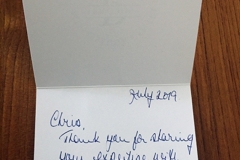 July 2019
Chris,
Thank you for sharing
your expertise with